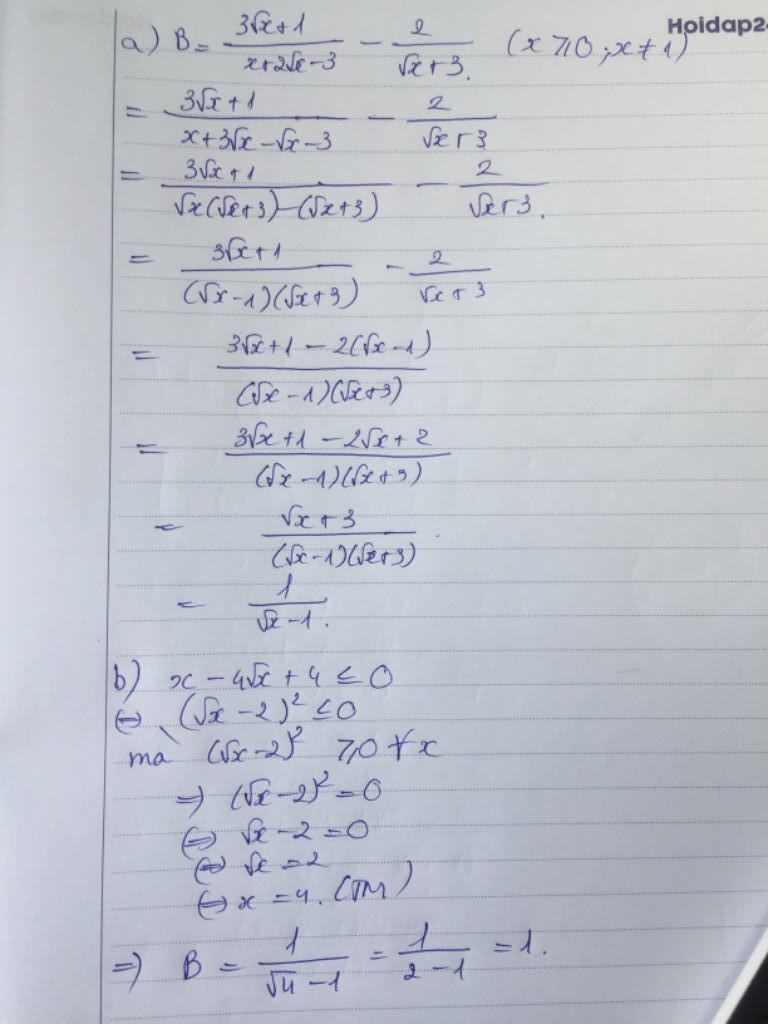 Hoidap2
a) B = (3√x+1)/(x+2√x-3) - 2/(√x+3). (x ⩾ 0 ; x ≠ 1)
= (3√x+1)/(x+3√x-√x-3) - 2/(√x+3)
= (3√x+1)/(√x(√x+3)-(√x+3)) - 2/(√x+3).
= (3√x+1)/((√x-1)(√x+3)) - 2/(√x+3)
= (3√x+1-2(√x-1))/((√x-1)(√x+3))
= (3√x+1-2√x+2)/((√x-1)(√x+3))
= (√x+3)/((√x-1)(√x+3)).
= 1/(√x-1).
b) x - 4√x + 4 ≤ 0
⇔ (√x-2)² ≤ 0
mà (√x-2)² ⩾ 0 ∀x
⇒ (√x-2)² = 0
⇔ √x-2 = 0
⇔ √x = 2
⇔ x = 4. (TM)
⇒ B = 1/(√4-1) = 1/(2-1) = 1.